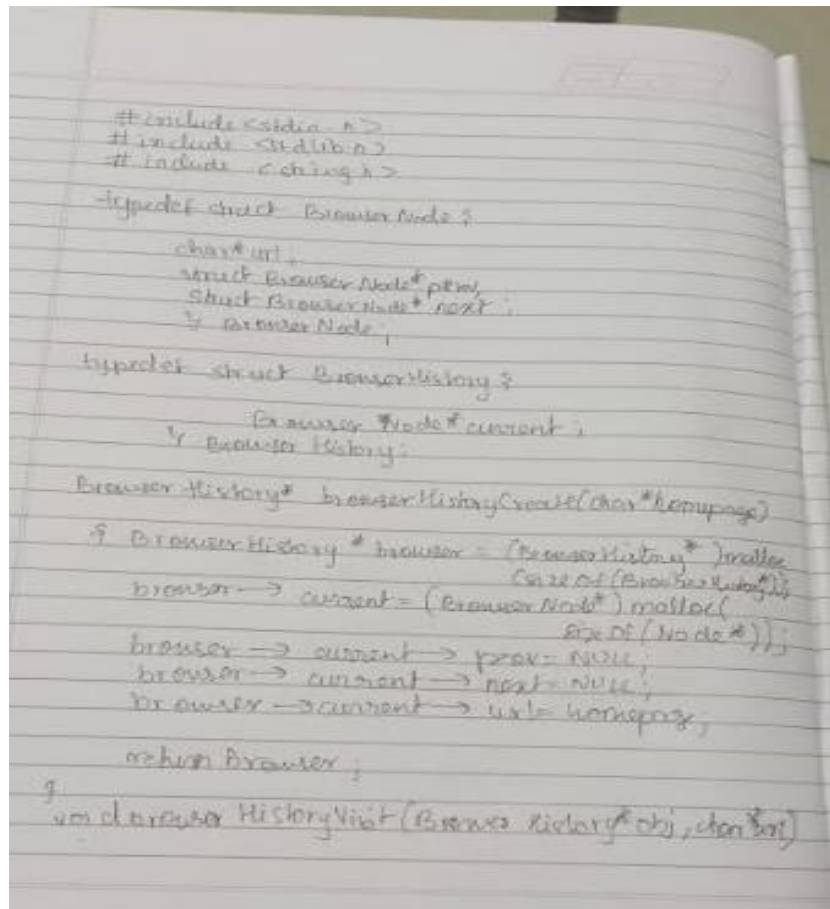 #include <stdio.h>
#include <stdlib.h>
#include <string.h>
typedef struct BrowserNode {
char* url;
struct BrowserNode* prev;
struct BrowserNode* next;
} BrowserNode;
typedef struct BrowserHistory {
Browser Node* current;
} Browser History;
Browser History* browserHistoryCreate(char* homepage)
{ BrowserHistory* browser = (BrowserHistory*)malloc
(sizeof(BrowserHistory*));
browser -> current = (BrowserNode*) malloc(
sizeof(Node*));
browser -> current -> prev = NULL;
browser -> current -> next = NULL;
browser -> current -> url = homepage;
return Browser;
}
void browser HistoryVisit(Browser History* obj, char* url)